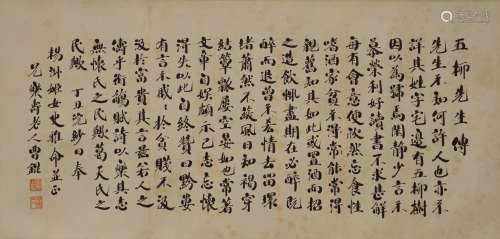 五柳先生傳
先生不知何許人也亦不
詳其姓字宅邊有五柳樹
因以為號焉閑靜少言不
慕榮利好讀書不求甚解
每有會意便欣然忘食性
嗜酒家貧不能常得
親舊知其如此或置酒而招
之造飲輒盡期在必醉既
醉而退曾不吝情去留環
堵蕭然不蔽風日短褐穿
結簞瓢屢空晏如也常著
文章自娛頗示己志忘懷
得失以此自終贊曰黔婁
有言不戚戚於貧賤不汲
汲於富貴其言茲若人之
儔乎銜觴賦詩以樂其志
無懷氏之民歟葛天氏之
民歟 丁丑 日奉
女史雅命並正
老人曹